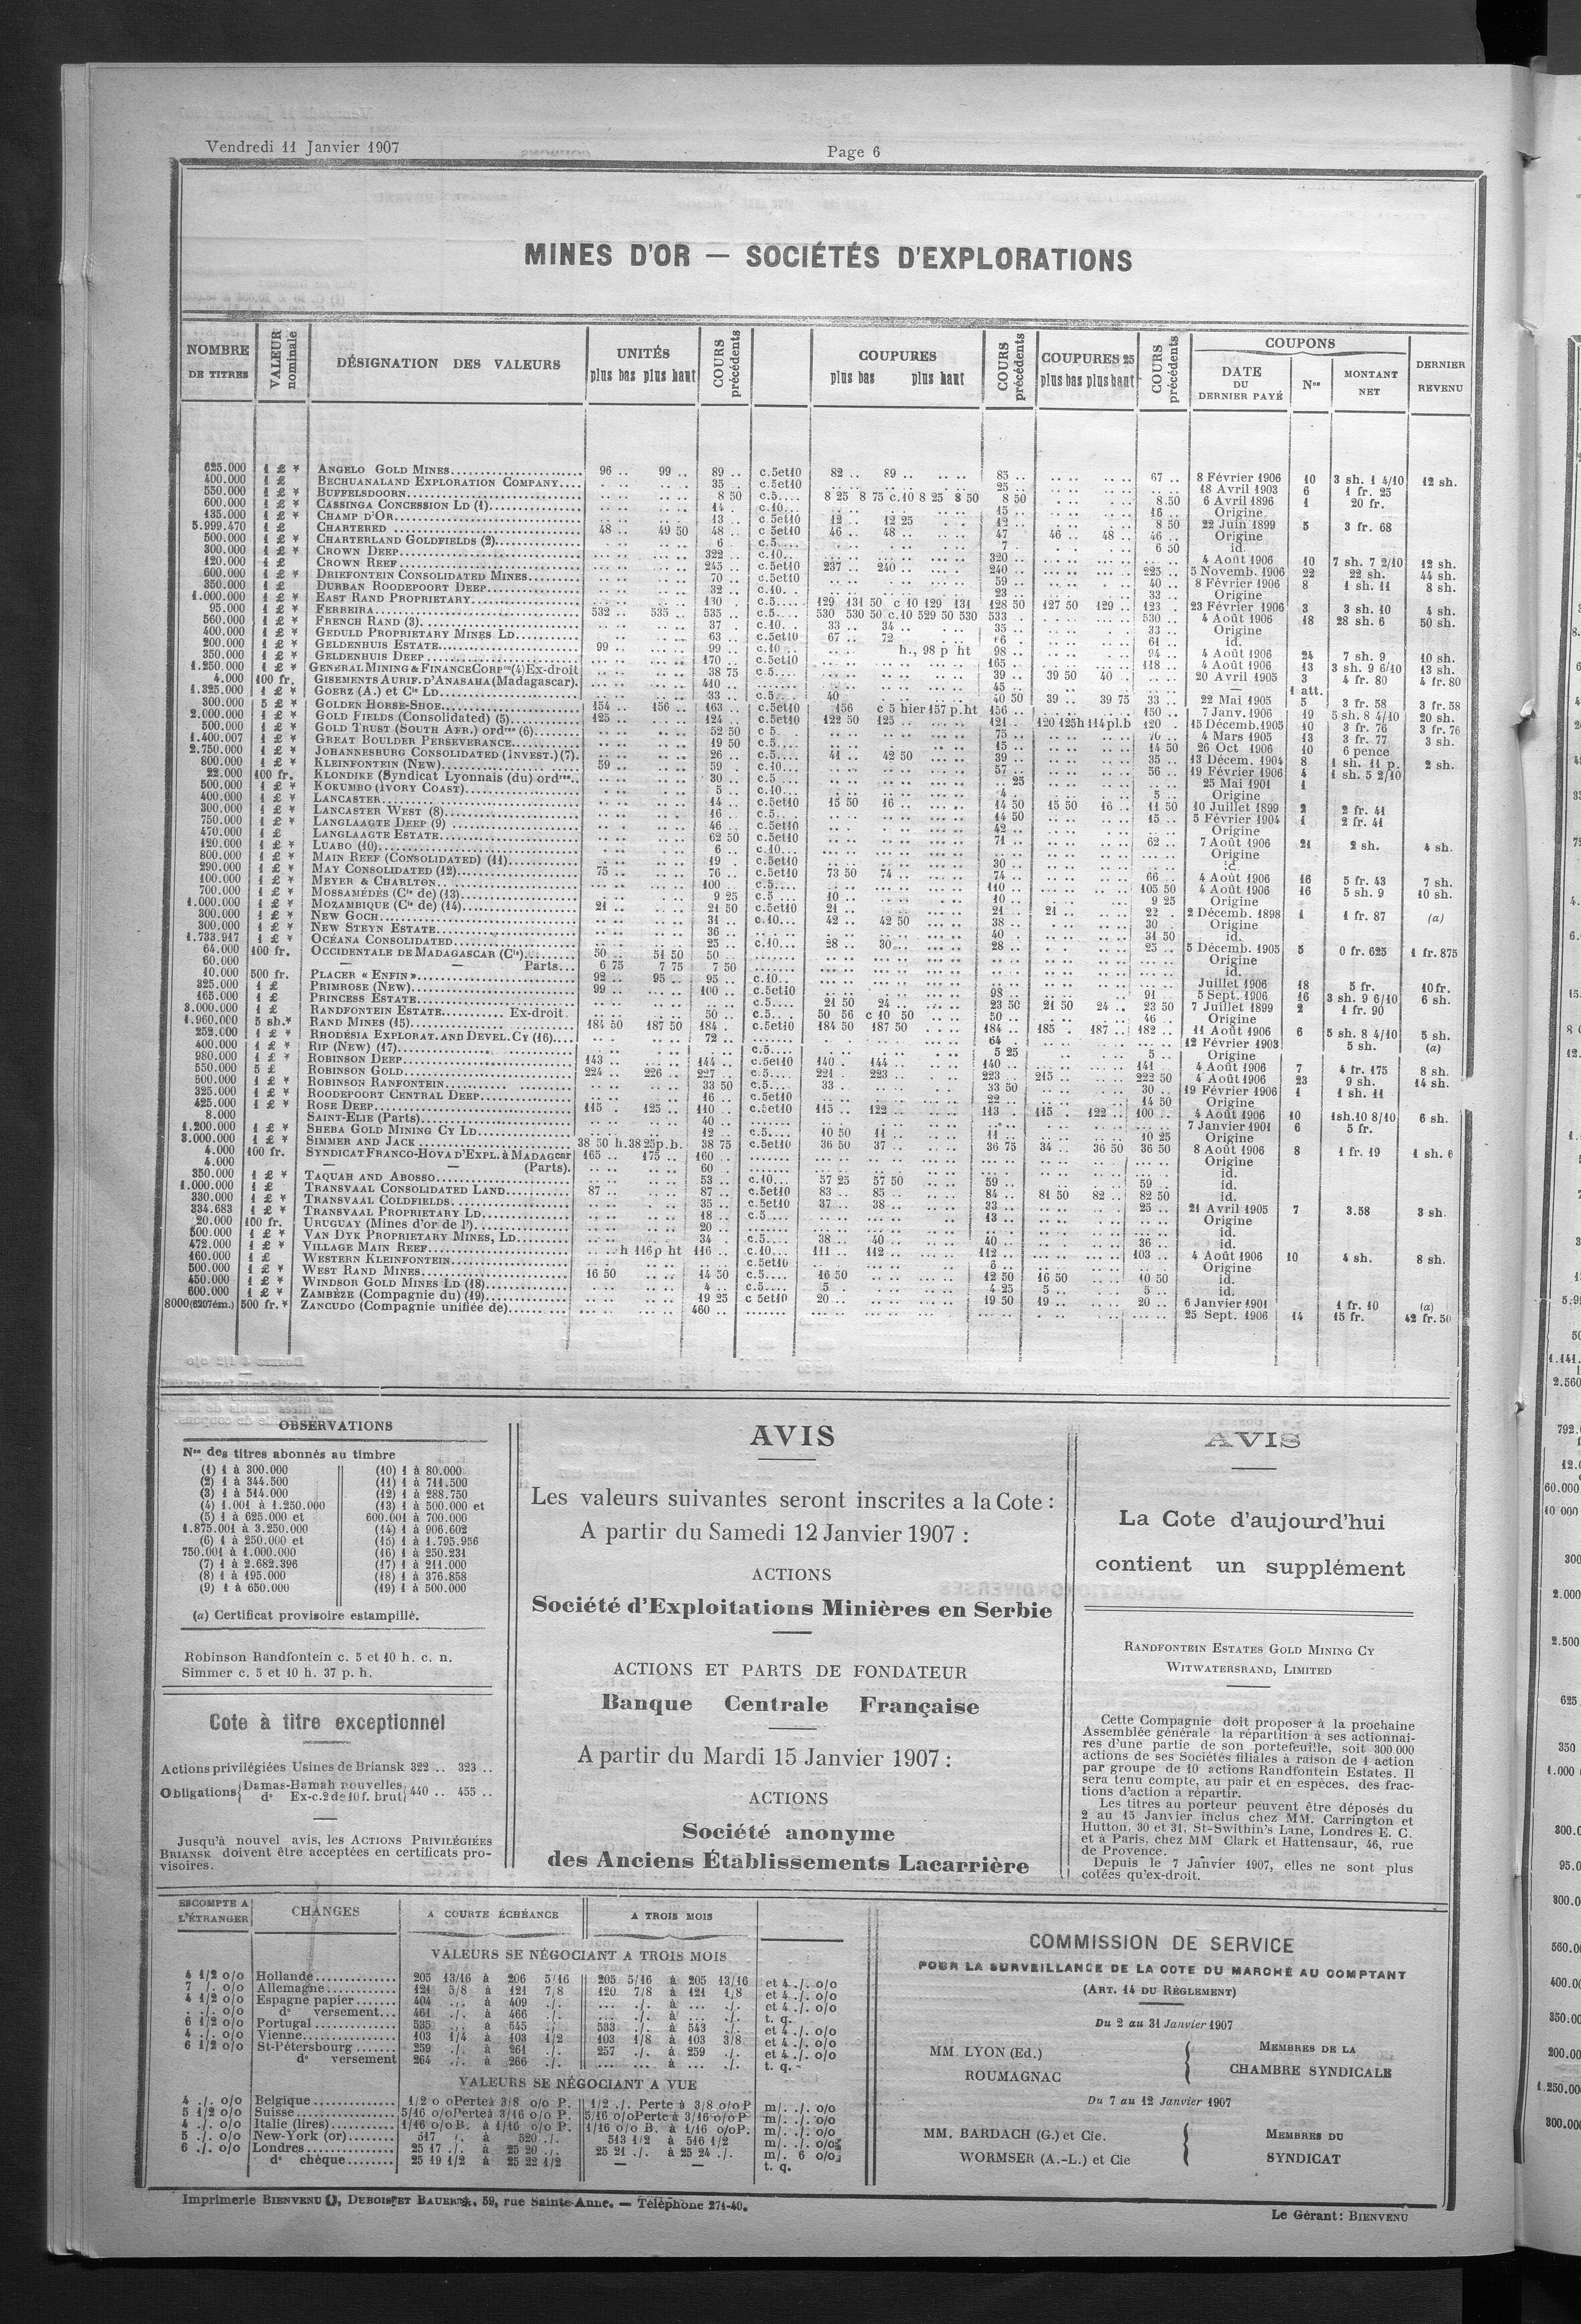 Vendredi 11 Janvier 1907
Page 6
MINES D'OR — SOCIÉTÉS D'EXPLORATIONS
NOMBRE DE TITRES
VALEUR nominale
DÉSIGNATION DES VALEURS
UNITÉS plus bas plus haut
COURS précédents
COUPURES plus bas plus haut
COURS précédents
COUPURES 25 plus bas plus haut
COURS précédents
COUPONS
DATE DU DERNIER PAYÉ
Nos
MONTANT NET
DERNIER REVENU
625.000 1 £ * ANGELO GOLD MINES 96 .. 99 .. 89 .. c.5et10 82 .. 89 .. 85 .. 67 .. 8 Février 1906 10 3 sh. 1 4/10 12 sh.
400.000 1 £ BECHUANALAND EXPLORATION COMPANY 35 .. c.5et10 25 .. 18 Avril 1903 6 1 fr. 25
550.000 1 £ * BUFFELSDOORN 8 50 c.5 8 25 8 75 c.10 8 25 8 50 8 50 8 50 6 Avril 1896 1 20 fr.
600.000 1 £ * CASSINGA CONCESSION LD (1) 14 .. c.10 15 .. 16 .. Origine
135.000 1 £ * CHAMP D'OR 13 .. c.5et10 12 .. 12 25 12 .. 8 50 22 Juin 1899 5 3 fr. 68
5.999.470 1 £ CHARTERED 48 .. 49 50 48 .. c 5et10 46 .. 48 .. 47 46 .. 48 .. 46 .. Origine
500.000 1 £ * CHARTERLAND GOLDFIELDS (2) 6 .. c.5 7 6 50 id.
300.000 1 £ * CROWN DEEP 322 .. c.10 320 .. 4 Août 1906 10 7 sh. 7 2/10 12 sh.
120.000 1 £ CROWN REEF 245 .. c.5et10 237 .. 240 .. 240 .. 225 .. 5 Novemb. 1906 22 22 sh. 44 sh.
600.000 1 £ * DRIEFONTEIN CONSOLIDATED MINES 70 .. c.5et10 59 .. 40 .. 8 Février 1906 8 1 sh. 11 8 sh.
350.000 1 £ DURBAN ROODEPOORT DEEP 32 .. c.10 23 .. 33 .. Origine
1.000.000 1 £ * EAST RAND PROPRIETARY 130 .. c.5 129 131 50 c 10 129 131 128 50 127 50 129 .. 123 .. 23 Février 1906 3 3 sh. 10 4 sh.
95.000 1 £ * FERREIRA 532 .. 535 .. 535 .. c.5 530 530 50 c.10 529 50 530 533 .. 530 .. 4 Août 1906 18 28 sh. 6 50 sh.
560.000 1 £ * FRENCH RAND (3) 37 .. c.10 33 .. 34 .. 35 .. 33 .. Origine
400.000 1 £ * GEDULD PROPRIETARY MINES LD 63 .. c.5et10 67 .. 72 61 .. id.
200.000 1 £ * GELDENHUIS ESTATE 99 .. 99 .. c.10 h., 98 p ht 98 .. 94 .. 4 Août 1906 24 7 sh. 9 10 sh.
350.000 1 £ * GELDENHUIS DEEP 170 .. c.5et10 165 .. 118 .. 4 Août 1906 13 3 sh. 9 6/10 13 sh.
1.250.000 1 £ * GENERAL MINING & FINANCE CORPon (4) Ex-droit 38 75 c.5 39 .. 39 50 40 .. 20 Avril 1905 3 4 fr. 80 4 fr. 80
4.000 100 fr. GISEMENTS AURIF. D'ANASAHA (Madagascar) 410 .. 45 .. — 1 att.
1.325.000 1 £ * GOERZ (A.) et Cie LD 33 .. c.5 40 40 50 39 .. 39 75 33 .. 22 Mai 1905 5 3 fr. 58 3 fr. 58
300.000 5 £ * GOLDEN HORSE-SHOE 154 .. 156 .. 163 .. c.5et10 156 c 5 hier 157 p. ht 156 .. 150 .. 7 Janv. 1906 19 5 sh. 8 4/10 20 sh.
2.000.000 1 £ * GOLD FIELDS (Consolidated) (5) 125 .. 124 .. c.5et10 122 50 125 121 .. 120 125h 114pl.b 120 .. 15 Décemb. 1905 10 3 fr. 76 3 fr. 76
500.000 1 £ * GOLD TRUST (SOUTH AFR.) ordres (6) 52 50 c 5 75 .. 70 .. 4 Mars 1905 13 3 fr. 77 3 sh.
1.400.007 1 £ * GREAT BOULDER PERSEVERANCE 19 50 c.5 15 .. 14 50 26 Oct 1906 10 6 pence
2.750.000 1 £ * JOHANNESBURG CONSOLIDATED (INVEST.) (7) 26 .. c.5 41 .. 42 50 39 .. 35 .. 13 Décem. 1904 8 1 sh. 11 p. 2 sh.
800.000 1 £ * KLEINFONTEIN (NEW) 59 .. 59 . c.10 57 .. 56 .. 19 Février 1906 4 1 sh. 5 2/10
22.000 100 fr. KLONDIKE (Syndicat Lyonnais (du) ordres 30 .. c.5 .. 25 25 Mai 1901 1
500.000 1 £ * KOKUMBO (IVORY COAST) 5 .. c.10 4 .. 5 .. Origine
400.000 1 £ * LANCASTER 14 .. c.5et10 15 50 16 .. 14 50 15 50 16 .. 11 50 10 Juillet 1899 2 2 fr. 41
300.000 1 £ * LANCASTER WEST (8) 16 .. c.5 14 50 15 .. 5 Février 1904 1 2 fr. 41
750.000 1 £ * LANGLAAGTE DEEP (9) 46 .. c.5et10 42 .. Origine
470.000 1 £ LANGLAAGTE ESTATE 62 50 c.5et10 71 .. 62 .. 7 Août 1906 21 2 sh. 4 sh.
120.000 1 £ * LUABO (10) 6 .. c.10 Origine
800.000 1 £ * MAIN REEF (CONSOLIDATED) (11) 19 .. c.5et10 30 .. id.
290.000 1 £ * MAY CONSOLIDATED (12) 75 .. 76 .. c.5et10 73 50 74 .. 74 .. 66 .. 4 Août 1906 16 5 fr. 43 7 sh.
100.000 1 £ * MEYER & CHARLTON 100 .. c.5 110 .. 105 50 4 Août 1906 16 5 sh. 9 10 sh.
700.000 1 £ * MOSSAMÉDÈS (Cie de) (13) 9 25 c.5 10 .. 10 .. 9 25 Origine
1.000.000 1 £ * MOZAMBIQUE (Cie de) (14) 21 .. 21 50 c.5et10 21 .. 21 .. 21 .. 22 . 2 Décemb. 1898 1 1 fr. 87 (a)
300.000 1 £ * NEW GOCH 31 .. c.10 42 .. 42 50 38 .. 30 Origine
300.000 1 £ * NEW STEYN ESTATE 36 .. 40 .. 31 50 id.
1.733.917 1 £ * OCÉANA CONSOLIDATED 25 .. c.10 28 .. 30 28 .. 25 .. 5 Décemb. 1905 5 0 fr. 625 1 fr. 875
64.000 100 fr. OCCIDENTALE DE MADAGASCAR (Cie) 50 .. 51 50 50 .. Origine
60.000 — — Parts 6 75 7 75 7 50 id.
10.000 500 fr. PLACER « ENFIN » 92 .. 95 .. 95 .. c.10 Juillet 1906 18 5 fr. 10 fr.
325.000 1 £ PRIMROSE (NEW) 99 .. 100 .. c.5et10 98 .. 91 .. 5 Sept. 1906 16 3 sh. 9 6/10 6 sh.
165.000 1 £ PRINCESS ESTATE c.5 21 50 24 .. 23 50 21 50 24 .. 23 50 7 Juillet 1899 2 1 fr. 90
3.000.000 1 £ RANDFONTEIN ESTATE Ex-droit. 50 .. c.5 50 56 c 10 50 50 .. 46 .. Origine
1.960.000 5 sh.* RAND MINES (15) 184 50 187 50 184 . c.5et10 184 50 187 50 184 .. 185 . 187 .. 182 .. 11 Août 1906 6 5 sh. 8 4/10 5 sh.
252.000 1 £ * RHODESIA EXPLORAT. AND DEVEL. CY (16) 72 .. 64 .. 12 Février 1903 5 sh. (a)
400.000 1 £ * RIP (NEW) (17) c.5 5 25 5 .. Origine
980.000 1 £ * ROBINSON DEEP 143 .. 144 .. c.5et10 140 . 144 .. 140 .. 141 .. 4 Août 1906 7 4 fr. 175 8 sh.
550.000 5 £ ROBINSON GOLD 224 .. 226 .. 227 .. c.5 221 .. 223 .. 223 .. 215 .. 222 50 4 Août 1906 23 9 sh. 14 sh.
500.000 1 £ * ROBINSON RANFONTEIN 33 50 c.5 33 .. 33 50 30 .. 19 Février 1906 1 1 sh. 11
325.000 1 £ * ROODEPOORT CENTRAL DEEP 16 .. c.5et10 22 .. 14 50 Origine
425.000 1 £ * ROSE DEEP 115 . 125 .. 110 .. c.5et10 115 .. 122 .. 113 . 115 .. 122 .. 100 .. 4 Août 1906 10 1sh.10 8/10 6 sh.
8.000 SAINT-ELIE (Parts) 40 .. 7 Janvier 1901 6 5 fr.
1.200.000 1 £ * SHEBA GOLD MINING CY LD 12 .. c.5 10 50 11 .. 11 .. 10 25 Origine
3.000.000 1 £ * SIMMER AND JACK 38 50 h.38 25p.b. 38 75 c.5et10 36 50 37 .. 36 75 34 .. 36 50 36 50 8 Août 1906 8 1 fr. 19 1 sh. 6
4.000 100 fr. SYNDICAT FRANCO-HOVA D'EXPL. à MADAGcar 165 .. 175 .. 160 .. Origine
4.000 — — (Parts). 60 .. id.
350.000 1 £ * TAQUAH AND ABOSSO 53 .. c.10 57 25 57 50 59 .. 59 .. id.
1.000.000 1 £ TRANSVAAL CONSOLIDATED LAND 87 .. 87 .. c.5et10 83 .. 85 .. 84 .. 81 50 82 .. 82 50 id.
330.000 1 £ * TRANSVAAL COLDFIELDS 35 .. c.5et10 37 .. 38 .. 33 .. 25 .. 21 Avril 1905 7 3.58 3 sh.
334.683 1 £ * TRANSVAAL PROPRIETARY LD 18 .. c.5 13 .. Origine
20.000 100 fr. URUGUAY (Mines d'or de l') 20 .. id.
500.000 1 £ * VAN DYK PROPRIETARY MINES, LD 34 .. c.5 38 .. 40 .. 40 .. 36 .. id.
472.000 1 £ * VILLAGE MAIN REEF h 116p ht 116 .. c.10 111 .. 112 .. 112 .. 103 .. 4 Août 1906 10 4 sh. 8 sh.
160.000 1 £ WESTERN KLEINFONTEIN c.5et10 Origine
500.000 1 £ * WEST RAND MINES 16 50 14 50 c.5 16 50 12 50 16 50 10 50 id.
450.000 1 £ * WINDSOR GOLD MINES LD (18) 4 .. c.5 5 . 4 25 5 .. 5 .. id.
600.000 1 £ * ZAMBÈZE (Compagnie du) (19) 19 25 c 5et10 20 .. 19 50 19 .. 20 .. 6 Janvier 1901 1 fr. 10 (a)
8000(6207ém.) 500 fr.* ZANCUDO (Compagnie unifiée de) 460 .. 25 Sept. 1906 14 15 fr. 42 fr. 50
OBSERVATIONS
Nos des titres abonnés au timbre
(1) 1 à 300.000
(2) 1 à 344.500
(3) 1 à 514.000
(4) 1.001 à 1.250.000
(5) 1 à 625.000 et
1.875.001 à 3.250.000
(6) 1 à 250.000 et
750.001 à 1.000.000
(7) 1 à 2.682.396
(8) 1 à 195.000
(9) 1 à 650.000
(10) 1 à 80.000
(11) 1 à 711.500
(12) 1 à 288.750
(13) 1 à 500.000 et
600.001 à 700.000
(14) 1 à 906.602
(15) 1 à 1.795.956
(16) 1 à 250.231
(17) 1 à 211.000
(18) 1 à 376.858
(19) 1 à 500.000
(a) Certificat provisoire estampillé.
Robinson Randfontein c. 5 et 10 h. c. n.
Simmer c. 5 et 10 h. 37 p. h.
Cote à titre exceptionnel
Actions privilégiées Usines de Briansk 322 .. 323 ..
Obligations { Damas-Hamah nouvelles
do Ex-c. 2 de 10 f. brut } 440 .. 455 ..
Jusqu'à nouvel avis, les ACTIONS PRIVILÉGIÉES
BRIANSK doivent être acceptées en certificats pro-
visoires.
AVIS
Les valeurs suivantes seront inscrites a la Cote :
A partir du Samedi 12 Janvier 1907 :
ACTIONS
Société d'Exploitations Minières en Serbie
ACTIONS ET PARTS DE FONDATEUR
Banque Centrale Française
A partir du Mardi 15 Janvier 1907 :
ACTIONS
Société anonyme
des Anciens Établissements Lacarrière
AVIS
La Cote d'aujourd'hui
contient un supplément
RANDFONTEIN ESTATES GOLD MINING CY
WITWATERSRAND, LIMITED
Cette Compagnie doit proposer à la prochaine
Assemblée générale la répartition à ses actionnai-
res d'une partie de son portefeuille, soit 300.000
actions de ses Sociétés filiales à raison de 1 action
par groupe de 10 actions Randfontein Estates. Il
sera tenu compte, au pair et en espèces, des frac-
tions d'action à répartir.
Les titres au porteur peuvent être déposés du
2 au 15 Janvier inclus chez MM. Carrington et
Hutton, 30 et 31, St-Swithin's Lane, Londres E. C.
et à Paris, chez MM Clark et Hattensaur, 46, rue
de Provence.
Depuis le 7 Janvier 1907, elles ne sont plus
cotées qu'ex-droit.
ESCOMPTE A L'ÉTRANGER
CHANGES
A COURTE ÉCHÉANCE
A TROIS MOIS
VALEURS SE NÉGOCIANT A TROIS MOIS
4 1/2 o/o Hollande 205 13/16 à 206 5/16 205 5/16 à 205 13/16 et 4 ./. o/o
7 ./. o/o Allemagne 121 5/8 à 121 7/8 120 7/8 à 121 1/8 et 4 ./. o/o
4 1/2 o/o Espagne papier 404 ./. à 409 ./. ... ./. à ... ./. et 4 ./. o/o
. ./. o/o do versement 461 ./. à 466 ./. ... ./. à ... ./. t. q.
6 1/2 o/o Portugal 535 ./. à 545 ./. 533 ./. à 543 ./. et 4 ./. o/o
4 ./. o/o Vienne 103 1/4 à 103 1/2 103 1/8 à 103 3/8 et 4 ./. o/o
6 1/2 o/o St-Pétersbourg 259 ./. à 261 ./. 257 ./. à 259 ./. et 4 ./. o/o
do versement 264 ./. à 266 ./. ... ... à ... ./. t. q.
VALEURS SE NÉGOCIANT A VUE
4 ./. o/o Belgique 1/2 o oPerte à 3/8 o/o P. 1/2 ./. Perte à 3/8 o/o P m/. ./. o/o
5 1/2 o/o Suisse 5/16 o/o Perte à 3/16 o/o P. 5/16 o/o Perte à 3/16 o/o P m/. ./. o/o
4 ./. o/o Italie (lires) 1/16 o/o B. à 1/16 o/o P. 1/16 o/o B. à 1/16 o/o P. m/. ./. o/o
5 ./. o/o New-York (or) 517 ./. à 520 ./. 513 1/2 à 516 1/2 m/. ./. o/o
6 ./. o/o Londres 25 17 ./. à 25 20 ./. 25 21 ./. à 25 24 ./. m/. 6 o/o
do chèque 25 19 1/2 à 25 22 1/2 — — t. q.
COMMISSION DE SERVICE
POUR LA SURVEILLANCE DE LA COTE DU MARCHÉ AU COMPTANT
(ART. 14 DU RÈGLEMENT)
Du 2 au 31 Janvier 1907
MM. LYON (Ed.)
ROUMAGNAC
MEMBRES DE LA
CHAMBRE SYNDICALE
Du 7 au 12 Janvier 1907
MM. BARDACH (G.) et Cie.
WORMSER (A.-L.) et Cie
MEMBRES DU
SYNDICAT
Imprimerie BIENVENU, DEBOIS ET BAUER, 59, rue Sainte-Anne. — Téléphone 271-40.
Le Gérant : BIENVENU